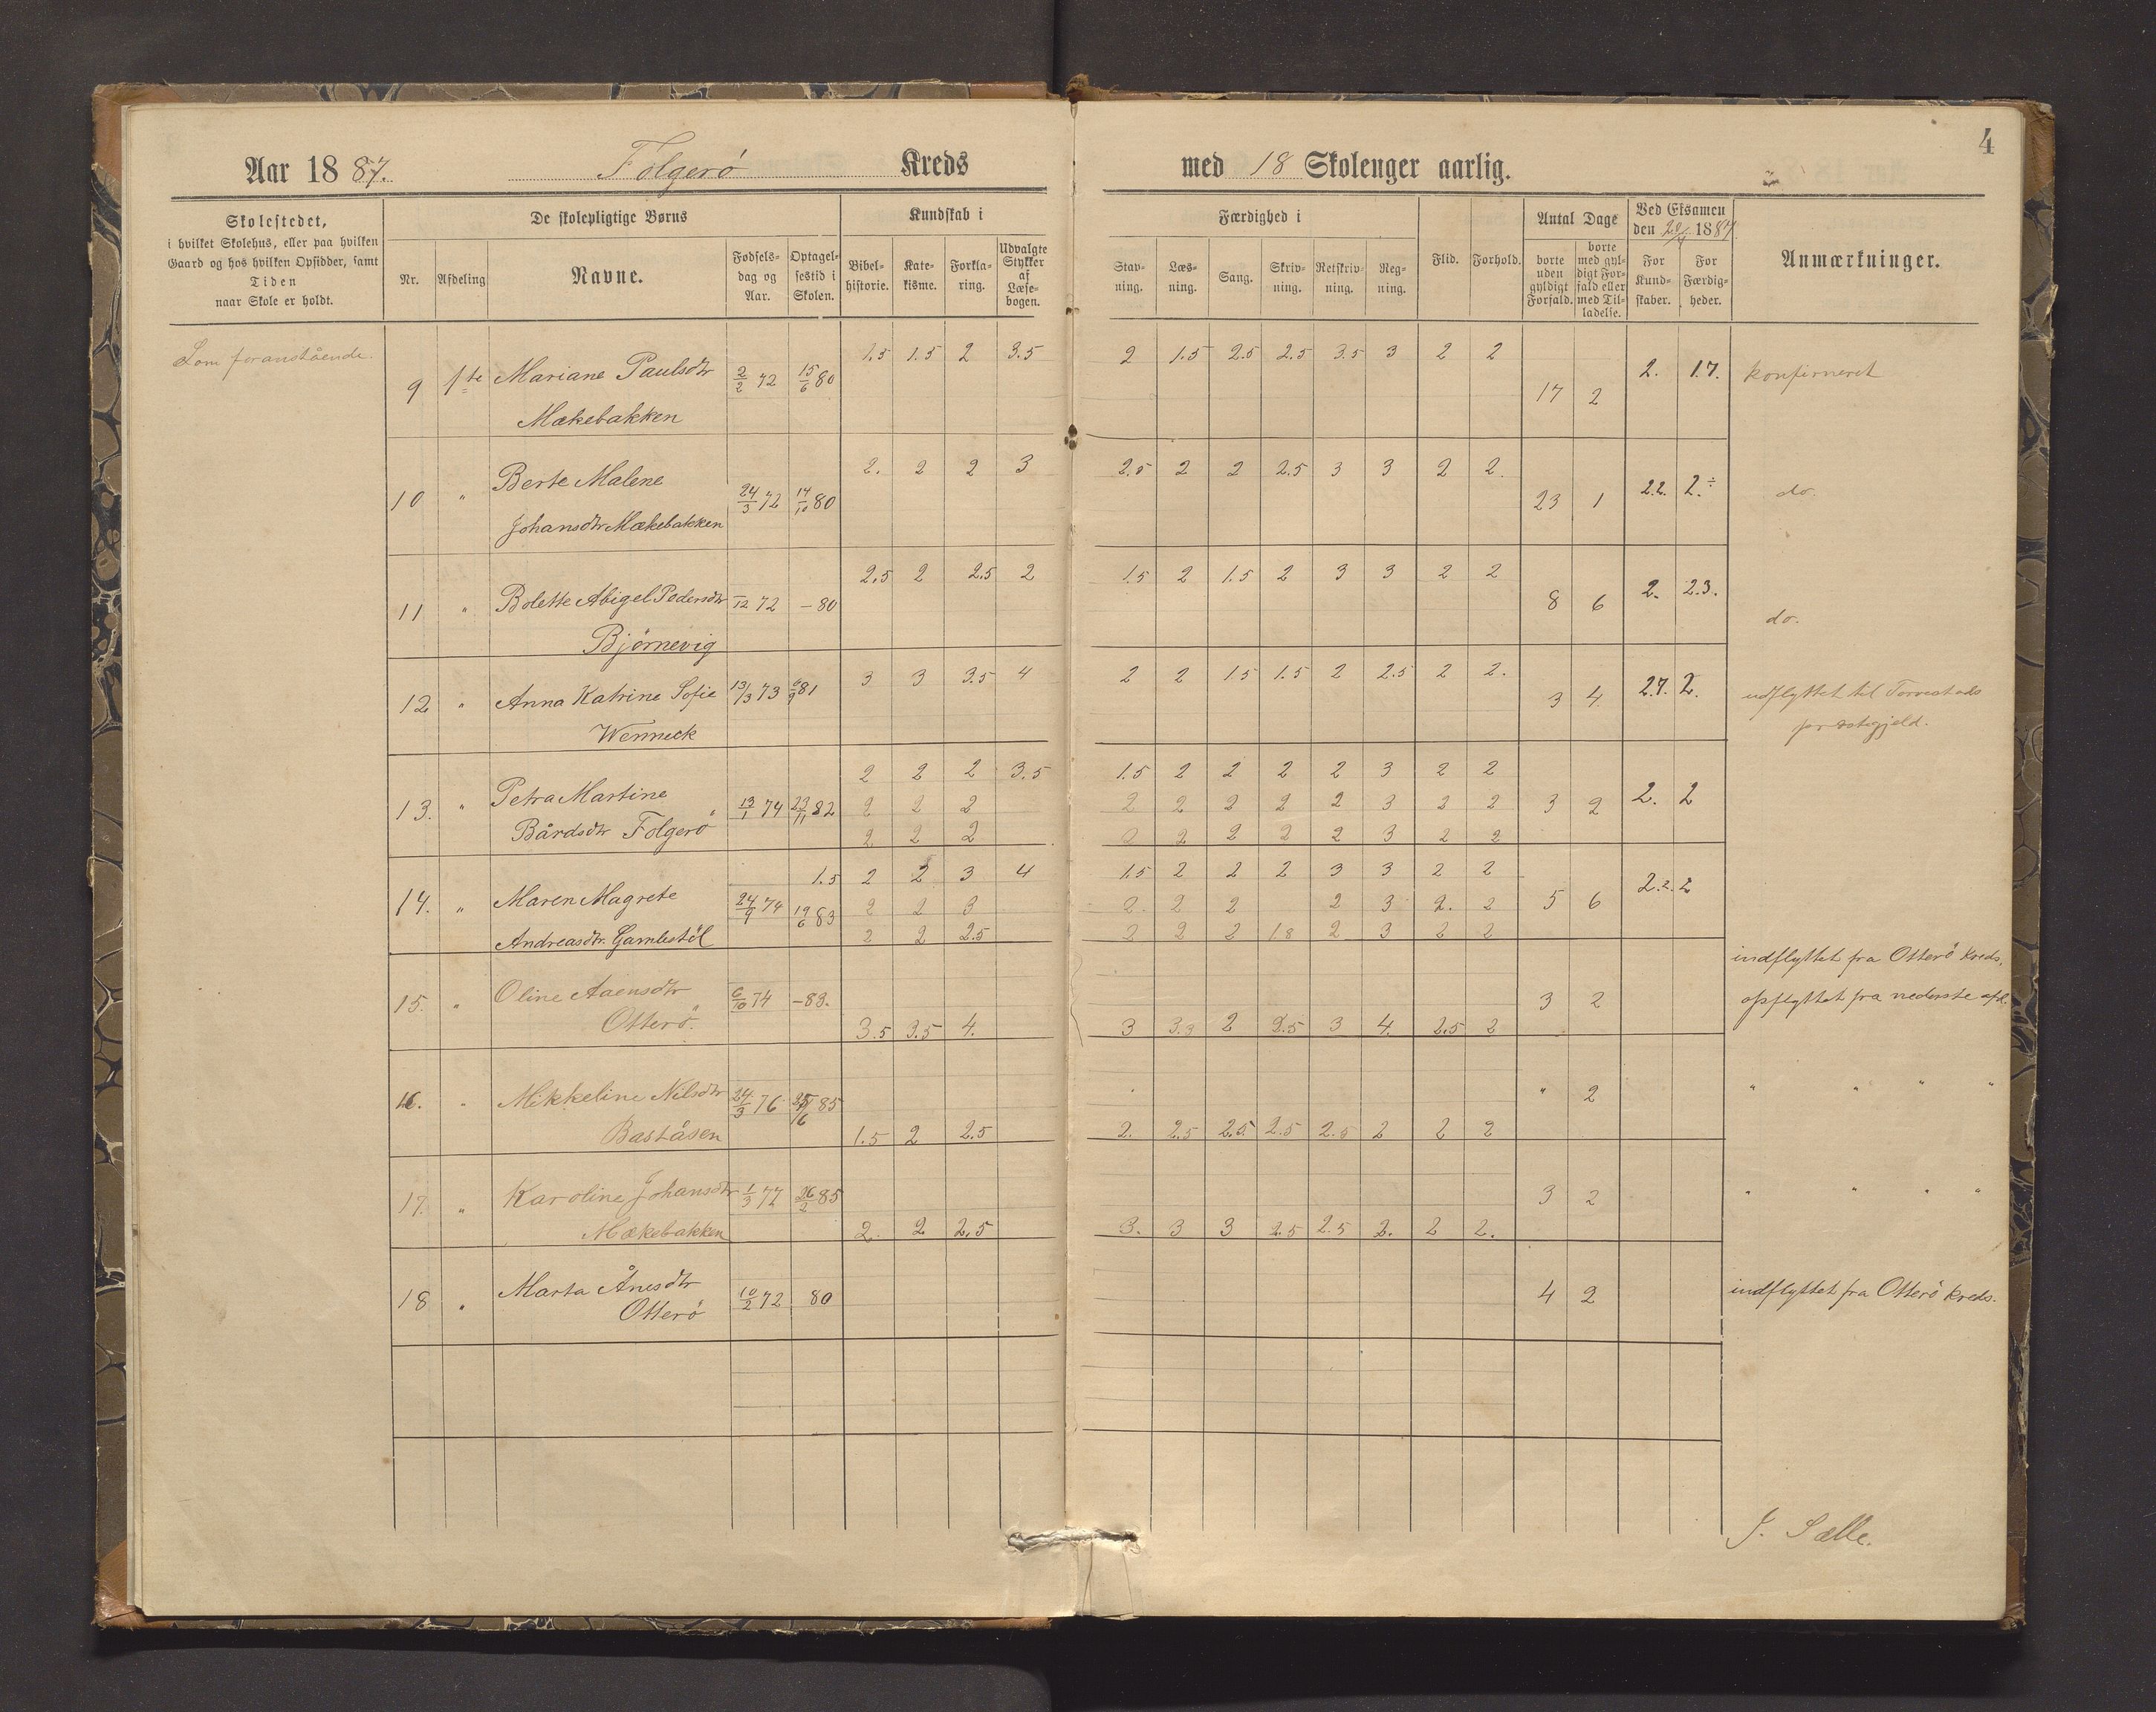 4
Aar 1887. Folgerö Kreds med 18 Skolenger aarlig.
Skolestedet, i hvilket Skolehus, eller paa hvilken Gaard og hos hvilken Opsidder, samt Tiden naar Skole er holdt.
De skolepligtige Børns
Nr. Afdeling Navne. Fødselsdag og Aar. Optagelsestid i Skolen.
Kundskab i
Bibelhistorie. Katekisme. Forklaring. Udvalgte Stykker af Læsebogen.
Færdighed i
Stavning. Læsning. Sang. Skrivning. Retskrivning. Regning.
Flid. Forhold.
Antal Dage
borte uden gyldigt Forfald. borte med gyldigt Forfald eller med Tilladelse.
Ved Eksamen den 20/4 1887.
For Kundskaber. For Færdigheder.
Anmærkninger.
Som foranstående.
9 1ste Mariane Paulsdtr 2/2 72 15/6 80 1.5 1.5 2 3.5 2 1.5 2.5 2.5 3.5 3 2 2 17 2 2. 1.7. konfirmeret
Mækebakken
10 " Berte Malene 24/3 72 14/10 80 2. 2 2 3 2.5 2 2 2.5 3 3 2 2. 23 1 2.2. 2.÷ do.
Johansdtr Mækebakken
11 " Bolette Abigel Pedersdtr –/12 72 – 80 2.5 2 2.5 2 1.5 2 1.5 2 3 3 2 2 8 6 2. 2.3. do.
Bjørnevig
12 " Anna Katrine Sofie 13/3 73 6/9 81 3 3 3.5 4 2 2 1.5 1.5 2 2.5 2 2. 3 4. 2.7. 2. udflyttet til Torvestads
Wenneck præstegjeld.
2 2 2 3.5 1.5 2 2 2 2 3 2 2
13. " Petra Martine 13/1 74 23/11 82 2 2 2 2 2 2 2 2 3 2 2 3 2 2. 2
Bårdsdtr Folgerö 2 2 2 2 2 2 2 2 3 2 2
1.5 2 2 3 4 1.5 2 2 2 3 3 2 2
14. " Maren Magrete 24/9 74 19/6 83 2 2 3 2. 2 2 2 3 2. 2 5 6 2.2. 2
Andreasdtr. Gamlestöl 2 2 2.5 2 2 2 1.8 2 3 2 2
indflyttet fra Otterö kreds.
15. " Oline Aaensdtr 6/10 74 – 83. 3 2 opflyttet fra nederste afd.
Otterö. 3.5 3.5 4. 3 3.3 2 2.5 3 4. 2.5 2
16. " Mikkeline Nilsdtr 24/3 76 25/6 85 " 2 " " " "
Baståsen 1.5 2 2.5 2. 2.5 2.5. 2.5 2.5 2 2 2
17. " Karoline Johansdtr 1/3 77 26/2 85 3 2 " " " "
Mækebakken 2. 2 2.5 3. 3 3 2.5 2.5 2. 2 2.
18 " Marta Ånesdtr 10/2 72 80 4 2 indflyttet fra Otterö kreds.
Otterö
J. Sælle.